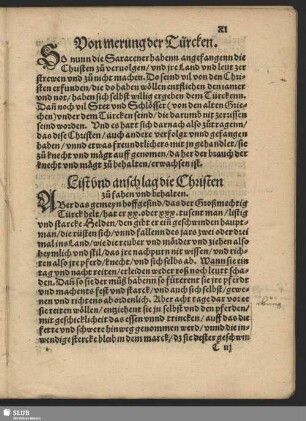 XI
Von merung der Türcken.
SO nunn die Saracener habenn angefangenn die
Christen zů veruolgen / vnd jre Land vnd leut zer
strewen vnd zů nicht machen. Do send vil von den Chri
sten erfunden / die do haben wöllen entfliehen den iamer
vnd not / haben sich selbst willig ergeben dem Türckenn.
Dañ noch vil Stet vnd Schlösser (von den alten Grie
chen) vnder dem Türcken send / die darumb nit zerrissen
send worden. Vnd es hatt sich darnach also zůtragenn /
das dise Christen / auch andere verfolgt vnnd gefangen
haben / vnnd etwas freundtlichers mit jn gehandlet / sie
zů knecht vnd mägt auff genomen / da her der brauch der
knecht vnd mägt zů behalten / erwachsen ist.
List vnd anschlag die Christen
zů fahen vnd behalten.
ABer das gemeyn hoffgesind / das der Großmechtig
Türck helt / hat er xx. oder xxx. tusent man / listig
vnd starcke Helden / den gibt er ein geschwinden haupt=
man / die rüsten sich / vnnd fallenn des jars zwei oder drei
mal ins Land / wie die reuber vnd mörder vnd ziehen also
heymlich vnd stil / das jre nachpurn nit wissen / vnd rich=
ten also jre pferd / knecht / vnd sich selbs ab. Wann sie ein
tag vnd nacht reiten / erleiden weder roß noch leut scha=
den. Dañ so sie der můß habenn so fůterent sie jre pferd
vnd machents fest vnd starck / vnd auch sich selbst / gewe=
nen vnd richtens ab ordenlich. Aber acht tage dar vor et
sie reiten wöllen / entziehent sie jn selbst vnd den pferden /
mit geschicklicheit das essen vnnd trincken / auff das die
fette vnd schwere hinweg genommen werd / vnnd die in=
wendige sterck bleib in dem marck / dz sie dester geschwin
C iij
SLUB